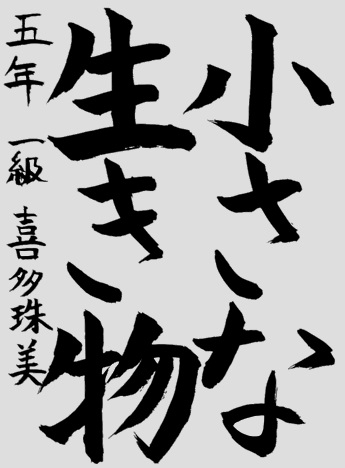 小さな
生き物
五年 一級 喜多珠美